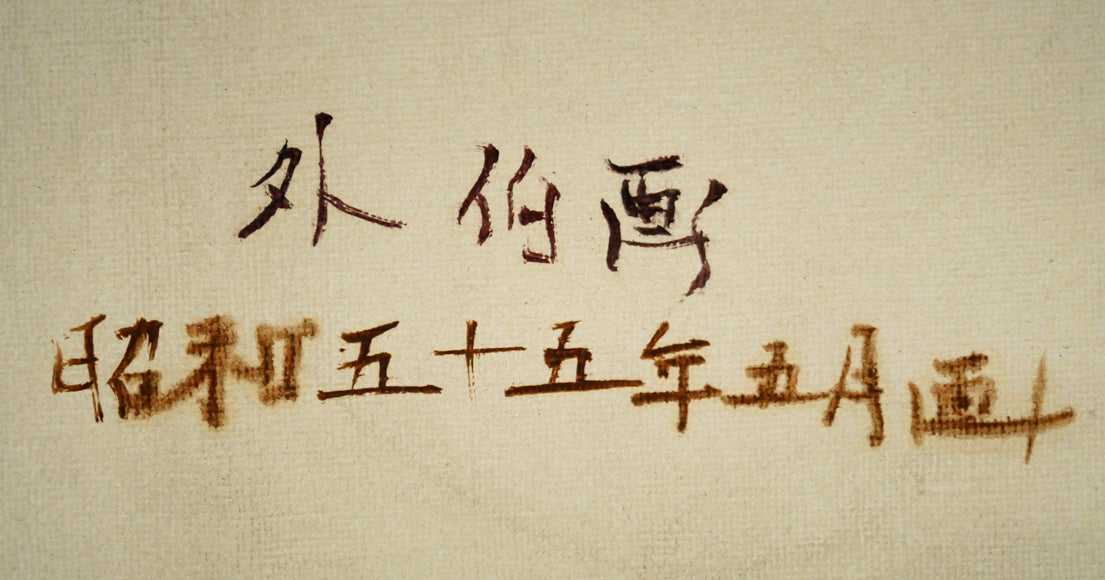 外伯画
昭和五十五年五月画